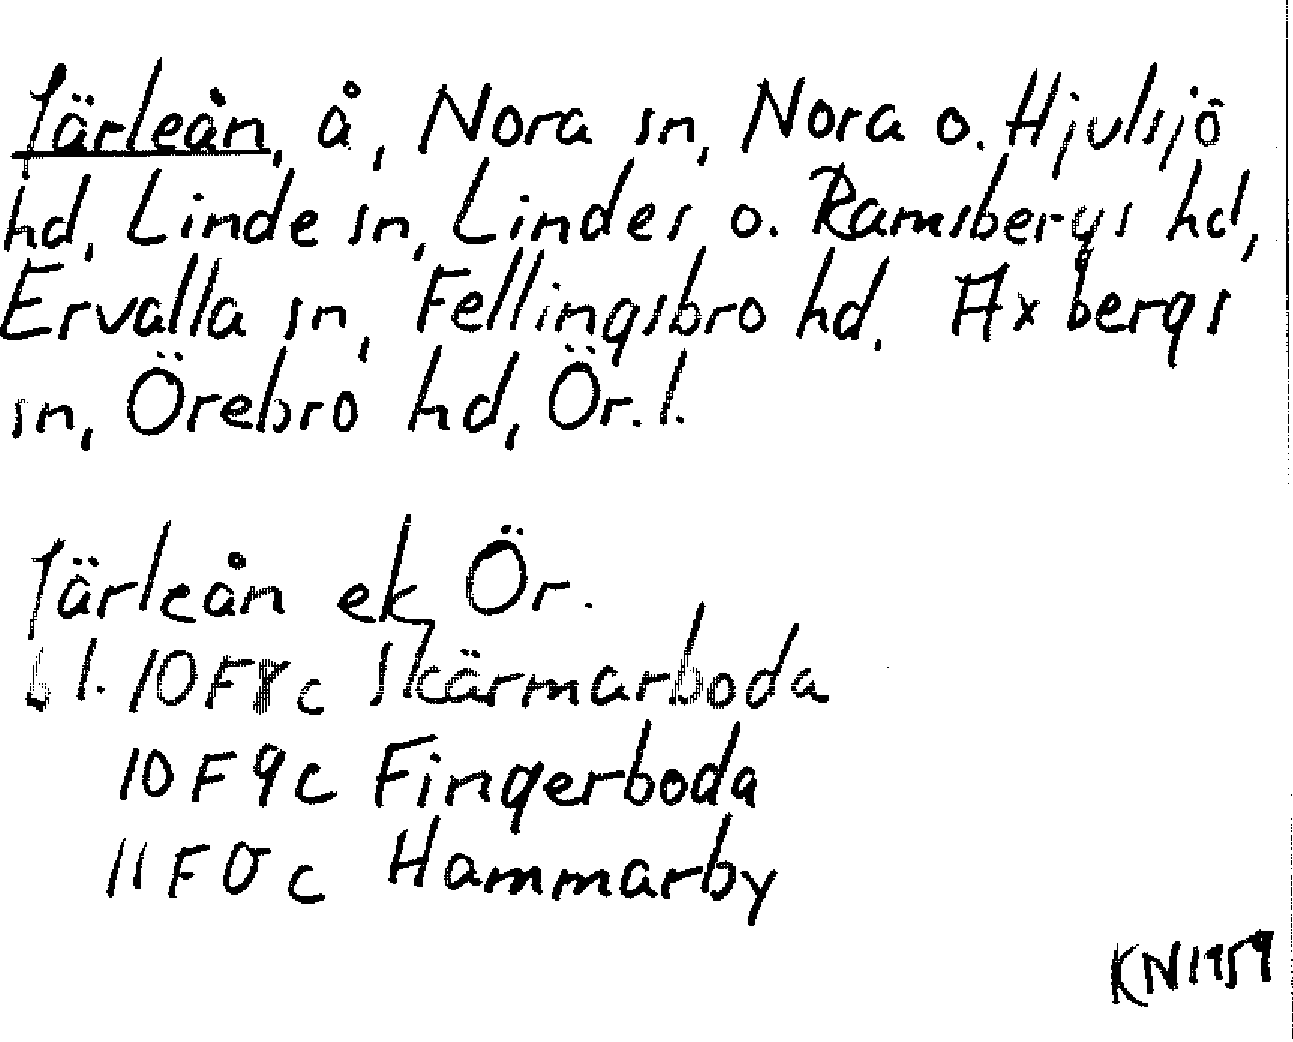 Järleån, å, Nora sn, Nora o. Hjulsjö
hd, Linde sn, Lindes o. Ramsbergs hd,
Ervalla sn, Fellingsbro hd. Axbergs
sn, Örebro hd, Ör. l.
Järleån ek Ör.
bl. 10F8c Skärmarboda
10F9c Fingerboda
11F0c Hammarby
KN1959